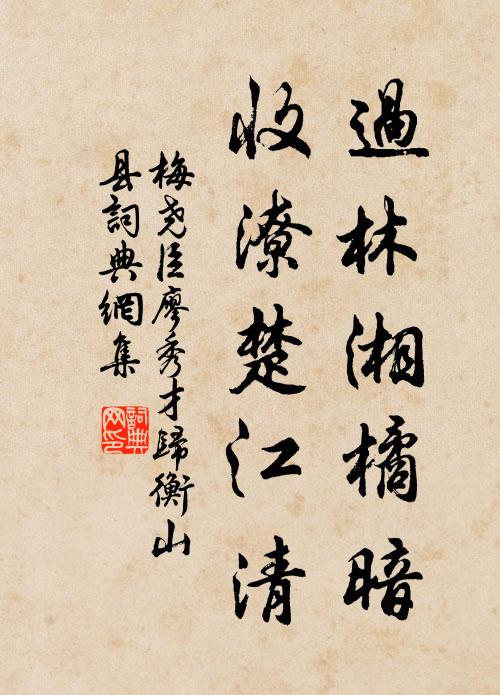 過林湘橘暗
收潦楚江清
梅尧臣廖秀才歸衡山
县詞典網集
詞典网印